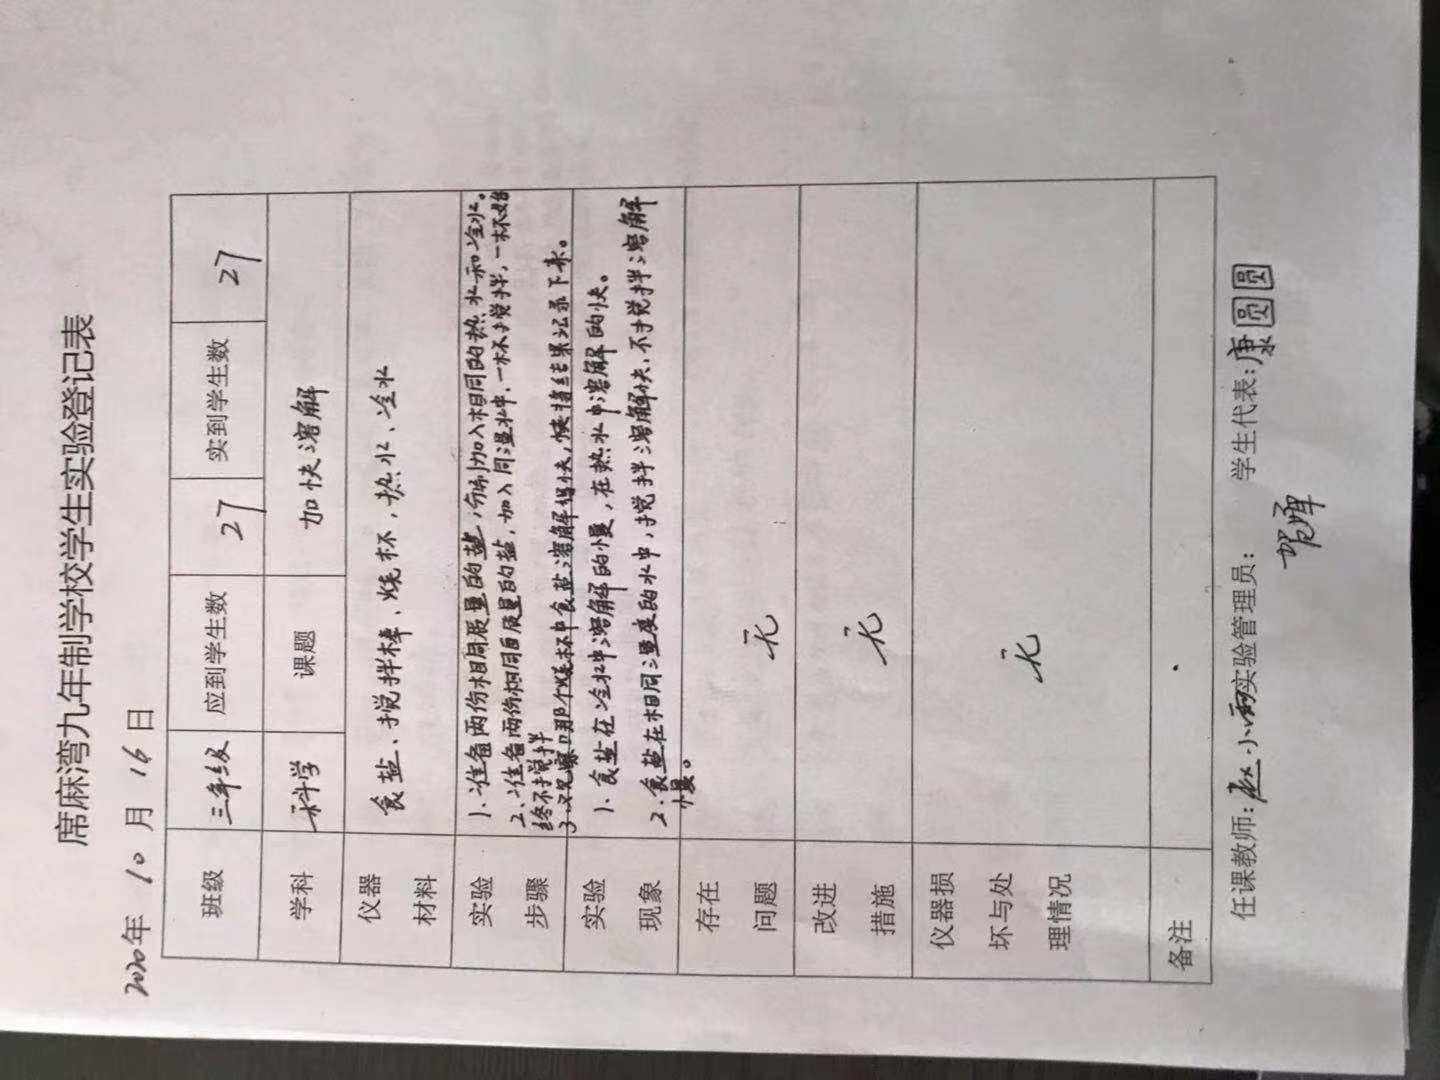 席麻湾九年制学校学生实验登记表
2020年 10 月 16 日
班级 三年级 应到学生数 27 实到学生数 27
学科 科学 课题 加快溶解
仪器
材料
食盐、搅拌棒、烧杯,热水、冷水
实验
步骤
1.准备两份相同质量的盐,分别加入相同的热水和冷水。
2.准备两份相同质量的盐,加入同温水中,一杯搅拌,一杯始
终不搅拌
3.观察那个烧杯中食盐溶解得快,快将结果记录下来。
实验
现象
1.食盐在冷水中溶解的慢,在热水中溶解的快。
2.食盐在相同温度的水中,搅拌溶解快,不搅拌溶解
慢。
存在
问题
无
改进
措施
无
仪器损
坏与处
理情况
无
备注
任课教师:赵小雨 实验管理员: 学生代表:康圆圆